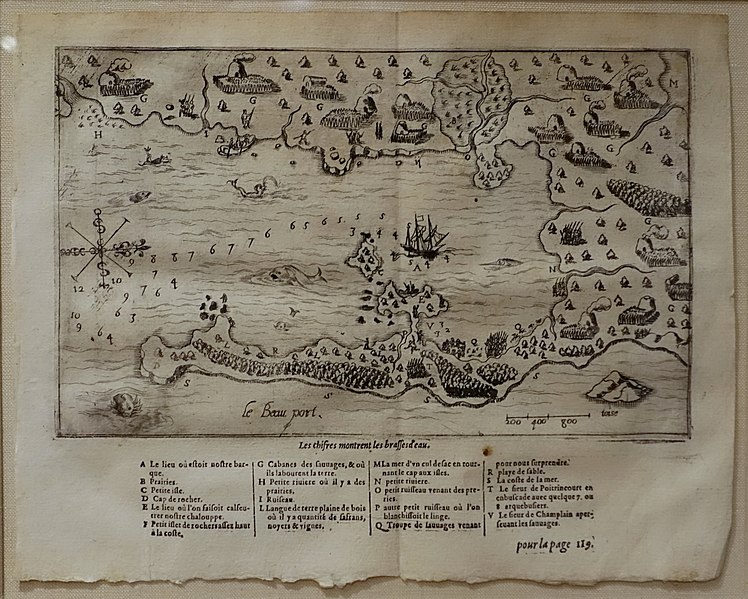 le Beau port.
200 400 800 toise
Les chifres montrent les brasses d'eau.
A Le lieu où estoit nostre bar-
que.
B Prairies.
C Petite isle.
D Cap de rocher.
E Le lieu où l'on faisoit calfeu-
trer nostre chalouppe.
F Petit islet de rochers assez haut
à la coste.
G Cabanes des sauuages, & où
ils labourent la terre.
H Petite riuiere où il y a des
prairies.
I Ruiseau.
L Langue de terre plaine de bois
où il y a quantité de saffrans,
noyers & vignes.
M La mer d'vn cul de sac en tour-
nant le cap aux isles.
N petite riuiere.
O petit ruisseau venant des pre-
ries.
P autre petit ruisseau où l'on
blanchissoit le linge.
Q Troupe de sauuages venant
pour nous surprendre.
R playe de sable.
S La coste de la mer.
T Le sieur de Poitrincourt en
enbuscade auec quelque 7. ou
8 arquebusiers.
V Le sieur de Champlain aper-
seuant les sauuages.
pour la page 119.